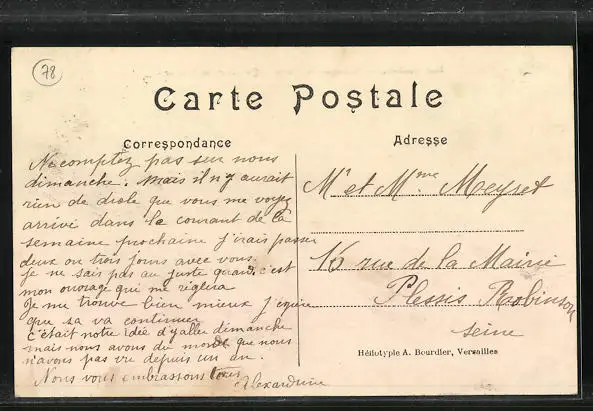 78
Carte Postale
Correspondance
Adresse
Ne comptez pas sur nous
dimanche. Mais il n'y aurait
rien de drole que vous me voyez
arrivé dans le courant de la
semaine prochaine j'irais passer
deux ou trois jours avec vous.
je ne sais pas au juste quand, c'est
mon ouvrage qui me réglera
Je me trouve bien mieux j'
que sa va continuer
c'était notre idée d'y aller dimanche
mais nous avons du monde que nous
n'avons pas vu depuis un an.
Nous vous embrassons tous
Alexandrine
Mr et Mme Meyset
15 rue de la Mairie
Plessis Robinson
Seine
Héliotypie A. Bourdier, Versailles